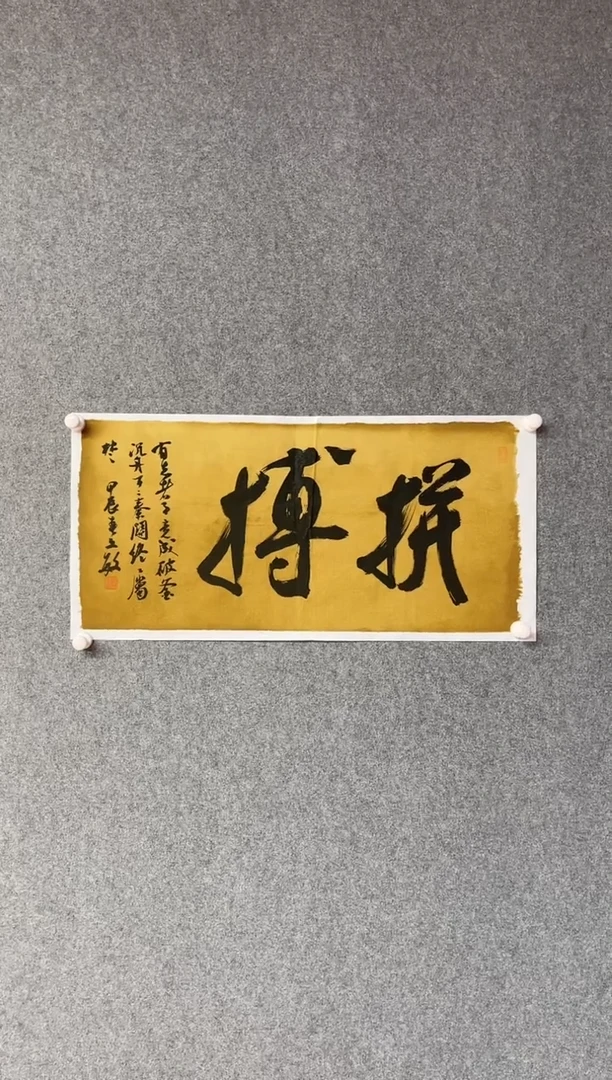 拼搏
有志者事竟成破釜
沉舟百二秦關終屬
楚 甲辰